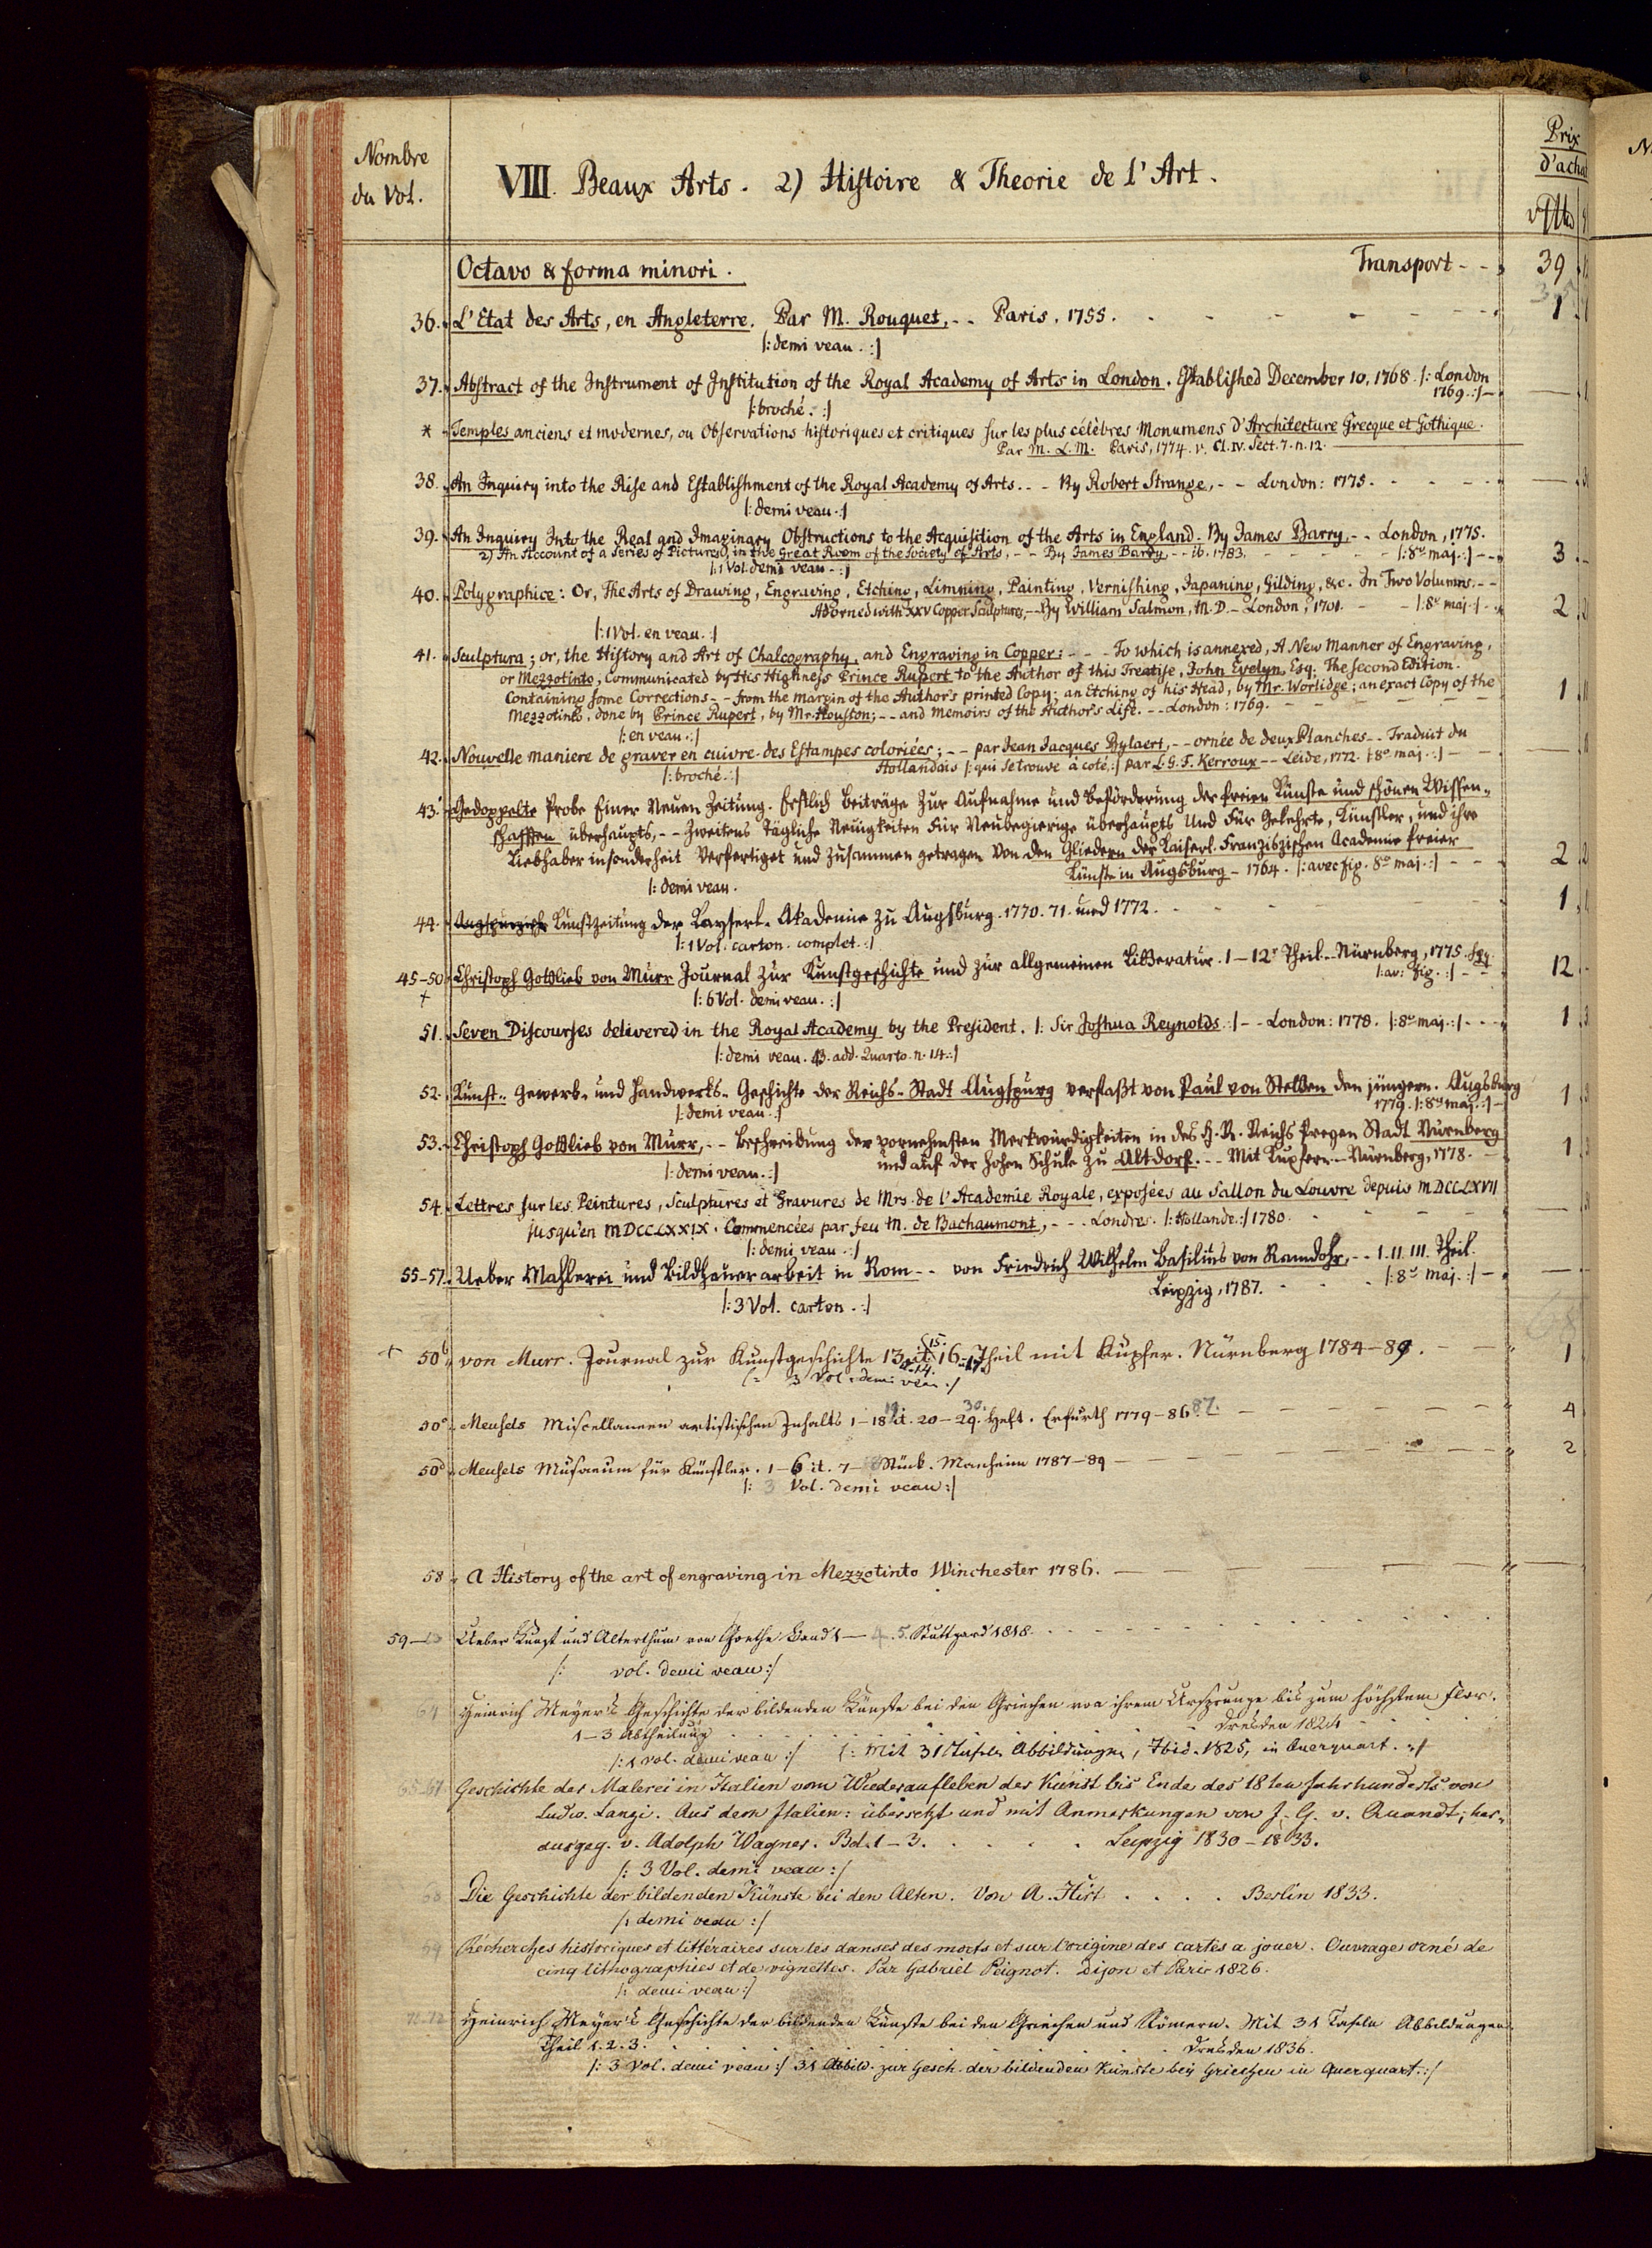 Nombre
du Vol.
VIII. Beaux Arts. 2) Histoire & Theorie de l'Art.
Prix
d'achat
Octavo & forma minori. Transport - - 39
36. L'Etat des Arts, en Angleterre. Par M. Rouquet, - - Paris. 1755. 1
|: demi veau. :|
37. Abstract of the Instrument of Institution of the Royal Academy of Arts in London. Established December 10, 1768. |: London
1769. :|
|: broché. :|
* Temples anciens et modernes, ou Observations historiques et critiques sur les plus célèbres Monumens d'Architecture Grecque et Gothique.
Par M. L. M. Paris, 1774. v. Cl. IV. Sect. 7. n. 12.
38. An Inquiry into the Rise and Establishment of the Royal Academy of Arts. - - By Robert Strange, - - London: 1775.
|: demi veau. :|
39. An Inquiry Into the Real and Imaginary Obstructions to the Acquisition of the Arts in England. By James Barry, - - London, 1775.
2) An Account of a Series of Pictures, in the Great Room of the Society of Arts, - - By James Barry, - - ib. 1783. |: 8º maj. :| 3
|: 1 Vol. demi veau. :|
40. Polygraphice: Or, The Arts of Drawing, Engraving, Etching, Limning, Painting, Vernishing, Japaning, Gilding, &c. In Two Volumns. - -
Adorned with XXV Copper Sculptures, - - By William Salmon, M. D. - London, 1701. |: 8º maj. :| 2
|: 1 Vol. en veau. :|
41. Sculptura; or, the History and Art of Chalcography, and Engraving in Copper: - - - To which is annexed, A New Manner of Engraving,
or Mezzotinto, Communicated by His Highness Prince Rupert to the Author of this Treatise, John Evelyn, Esq. The second Edition.
Containing some Corrections - - from the margin of the Author's printed Copy; an Etching of his Head, by Mr. Worlidge; an exact Copy of the 1
Mezzotinto, done by Prince Rupert, by Mr. Houston; - - and Memoirs of the Author's Life. - - London: 1769.
|: en veau. :|
42. Nouvelle maniere de graver en cuivre des Estampes coloriées; - - par Jean Jacques Bylaert, - - ornée de deux Planches - - Traduit du
Hollandais |: qui se trouve à coté, :| par L. G. F. Kerroux - - Leide, 1772. |: 8º maj. :|
|: broché. :|
43. Gedoppelte Probe Einer Neuen Zeitung. Erstlich Beiträge Zur Aufnahme und Beförderung der freien Künste und schönen Wissen-
schafften überhaupts, - - Zweitens Tägliche Neuigkeiten Für Neubegierige überhaupts Und Für Gelehrte, Künstler, und ihre
Liebhaber insonderheit Verfertiget und Zusammen getragen Von den Gliedern der Kaiserl. Franziszischen Academie freier
Künste in Augsburg - 1764. |: avec fig. 8º maj. :| 2
|: demi veau.
44. Kunstzeitung der Kayserl. Akademie zu Augsburg. 1770. 71. und 1772. 1
|: 1 Vol. carton. complet. :|
45-50. Christoph Gottlieb von Murr Journal zur Kunstgeschichte und zur allgemeinen Litteratur. 1 - 12r Theil. - Nürnberg, 1775. sqq.
|: av: fig. :| 12
|: 6 Vol. demi veau. :|
51. Seven Discourses delivered in the Royal Academy by the President. |: Sir Joshua Reynolds :| - - London: 1778. |: 8º maj. :| 1
|: demi veau. add. Quarto. n. 14. :|
52. Kunst- Gewerb- und Handwerks- Geschichte der Reichs-Stadt Augspurg verfaßt von Paul von Stetten den jüngern. Augsburg
1779. |: 8º maj. :| 1
|: demi veau. :|
53. Christoph Gottlieb von Murr, - - Beschreibung der vornehmsten Merkwürdigkeiten in des H. R. Reichs freyen Stadt Nürnberg
und auf der hohen Schule zu Altdorf. - - Mit Kupfern. - Nürnberg, 1778. 1
|: demi veau. :|
54. Lettres sur les Peintures, Sculptures et Gravures de Mrs. de l'Academie Royale, exposées au Sallon du Louvre depuis MDCCLXVII
jusqu'en MDCCLXXIX. Commencées par feu M. de Bachaumont, - - - Londres. |: Hollande. :| 1780.
|: demi veau. :|
55-57. Ueber Mahlerei und Bildhauerarbeit in Rom - - von Friedrich Wilhelm Basilius von Ramdohr, - - I. II. III. Theil.
Leipzig, 1787. |: 8º maj. :|
|: 3 Vol. carton. :|
+ 50b von Murr. Journal zur Kunstgeschichte 13 15. 16 Theil mit Kupfer. Nürnberg 1784-89. 1
3 Vol. demi veau. :|
50c Meusels Miscellaneen artistischen Inhalts 1-18 19 it. 20-29. 30. Heft. Erfurth 1779-86 87. 4
50d Meusels Musaeum für Künstler. 1-6 it. 7- Stück. Manheim 1787-89 2
|: 3 Vol. demi veau :|
58 A History of the art of engraving in Mezzotinto Winchester 1786.
59- Ueber Kunst und Alterthum von Goethe Band 1 - 4. 5. Stuttgard 1818.
|: vol. demi veau :|
64 Heinrich Meyer's Geschichte der bildenden Künste bei den Griechen von ihrem Ursprunge bis zum höchsten Flor.
1-3 Abtheilung Dresden 1824
|: 1 vol. demi veau :| |: Mit 31 Tafeln Abbildungen, Ibid. 1825, in Querquart. :|
65-67 Geschichte der Malerei in Italien vom Wiederaufleben der Kunst bis Ende des 18ten Jahrhunderts von
Ludw. Lanzi. Aus dem Italien: übersetzt und mit Anmerkungen von J. G. v. Quandt; her-
ausgeg. v. Adolph Wagner. Bd. 1-3. Leipzig 1830-1833.
|: 3 Vol. demi veau :|
68 Die Geschichte der bildenden Künste bei den Alten. Von A. Hirt . . . . Berlin 1833.
|: demi veau :|
Récherches historiques et littéraires sur les danses des morts et sur l'origine des cartes a jouer. Ouvrage orné de
cinq lithographies et de vignettes. Par Gabriel Peignot. Dijon et Paris 1826.
|: demi veau :|
70-72 Heinrich Meyer's Geschichte der bildenden Künste bei den Griechen und Römern. Mit 31 Tafeln Abbildungen.
Theil 1. 2. 3. Dresden 1836.
|: 3 Vol. demi veau :| 31 Abbild. zur Gesch. der bildenden Künste bey Griechen in Querquart. :|